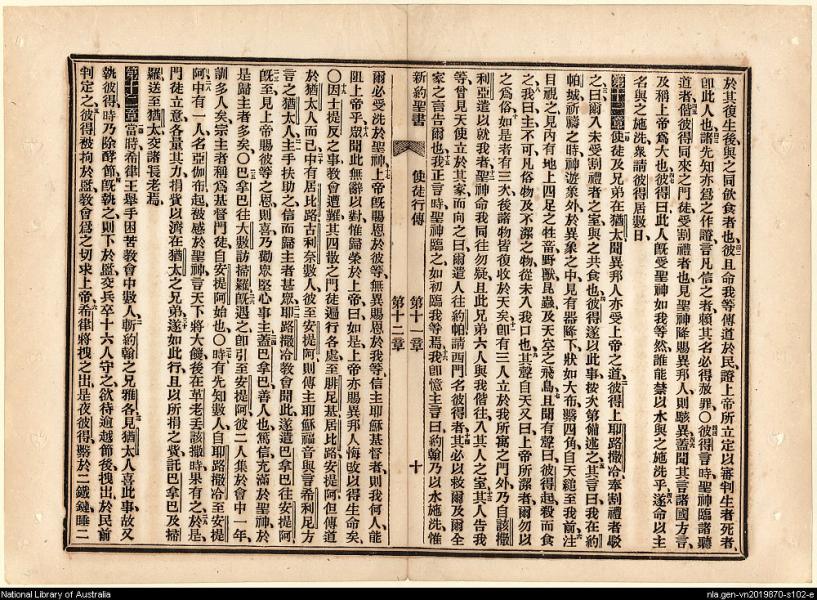 於其復生後與之同飲食者也彼且命我等傳道於民證上帝所立定以審判生者死者、
卽此人也諸先知亦爲之作證言凡信之者賴其名必得赦罪○彼得言時聖神臨諸聽
道者偕彼得同來之門徒受割禮者也見聖神降賜異邦人則駭異蓋聞其言諸國方言、
及稱上帝爲大也彼得曰此人旣受聖神如我等然誰能禁以水與之施洗乎遂命以主
名與之施洗衆請彼得居數日
第十一章使徒及兄弟在猶太聞異邦人亦受上帝之道彼得上耶路撒冷奉割禮者駁
之曰爾入未受割禮者之室與之共食也彼得遂以此事挨次第備述之其言曰我在約
帕城祈禱之時神遊象外於異象之中見有器降下狀如大布繫四角自天縋至我前注
目視之見內有地上四足之牲畜野獸昆蟲及天空之飛鳥且聞有聲曰彼得起殺而食
之我曰主不可凡俗物及不潔之物從未入我口也其聲自天又曰上帝所潔者爾勿以
之爲俗如是者有三次後諸物皆復收於天矣卽有三人立於我所寓之門外乃自該撒
利亞遣以就我者聖神命我同往勿疑且此兄弟六人與我偕往入其人之室其人告我
等曾見天使立於其家而向之曰爾遣人往約帕請西門名彼得者其必以救爾及爾全
家之言告爾也我正言時聖神臨之如初臨我等焉我卽憶主言曰約翰乃以水施洗惟
新約聖書 使徒行傳 第十一章 第十二章 十
爾必受洗於聖神上帝旣賜恩於彼等無異賜恩於我等信主耶穌基督者則我何人能
阻上帝乎衆聞此無辭以對惟歸榮於上帝曰如是上帝亦賜異邦人悔改以得生命矣
○因士提反之事教會遭難其四散之門徒遍行各處至腓尼基居比路安提阿但傳道
於猶太人而已中有居比路古利奈數人彼至安提阿則傳主耶穌福音與言希利尼方
言之猶太人主手扶助之信而歸主者甚衆耶路撒冷教會聞此遂遣巴拿巴往安提阿
旣至見上帝賜彼等之恩則喜乃勸衆堅心事主蓋巴拿巴善人也篤信充滿於聖神於
是歸主者多矣○巴拿巴往大數訪掃羅旣遇之卽引至安提阿彼二人集於會中一年、
訓多人矣宗主者稱爲基督門徒自安提阿始也○時有先知數人自耶路撒冷至安提
阿中有一人名亞伽布起被感於聖神言天下將大饑後在革老丟該撒時果有之於是
門徒立意各量其力捐貲以濟在猶太之兄弟遂如此行且以所捐之貲託巴拿巴及掃
羅送至猶太交諸長老焉
第十二章當時希律王舉手困苦教會中數人斬約翰之兄雅各見猶太人喜此事故又
執彼得時乃除酵節旣執之則下於監交兵卒十六人守之欲待逾越節後拽出於民前
判定之彼得被拘於監教會爲之切求上帝希律將拽之出是夜彼得繫於二鐵鏈睡二
National Library of Australia
nla.gen-vn2019870-s102-e